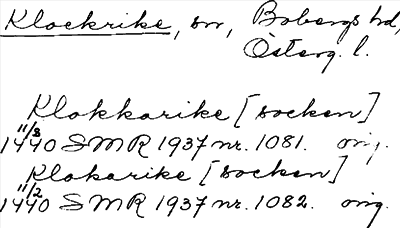 Klockrike, sn, Bobergs hd,
Österg. l.
Klokkarike [socken]
11/3 1440 SMR 1937 nr. 1081. orig.
Klokarike [socken]
11/2 1440 SMR 1937 nr. 1082. orig.